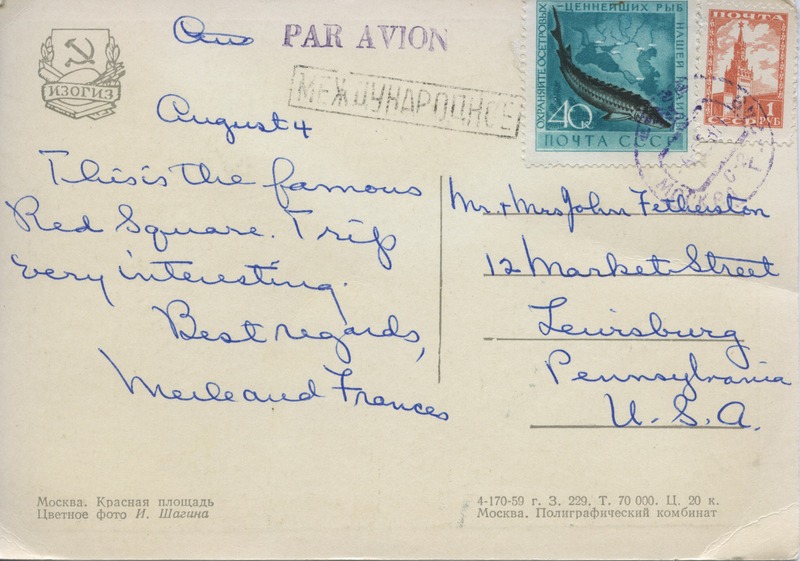 PAR AVION
МЕЖДУНАРОДНОЕ
ИЗОГИЗ
ОХРАНЯЙТЕ ОСЕТРОВЫХ - ЦЕННЕЙШИХ РЫБ НАШЕЙ
40к
ПОЧТА СССР
ПОЧТА
1 РУБ
МОСКВА
August 4
This is the famous
Red Square. Trip
very interesting.
Best regards,
Merle and Frances
Mr. + Mrs John Fetherston
12 Market Street
Lewisburg
Pennsylvania
U. S. A.
Москва. Красная площадь
Цветное фото И. Шагина
4-170-59 г. З. 229. Т. 70 000. Ц. 20 к.
Москва. Полиграфический комбинат